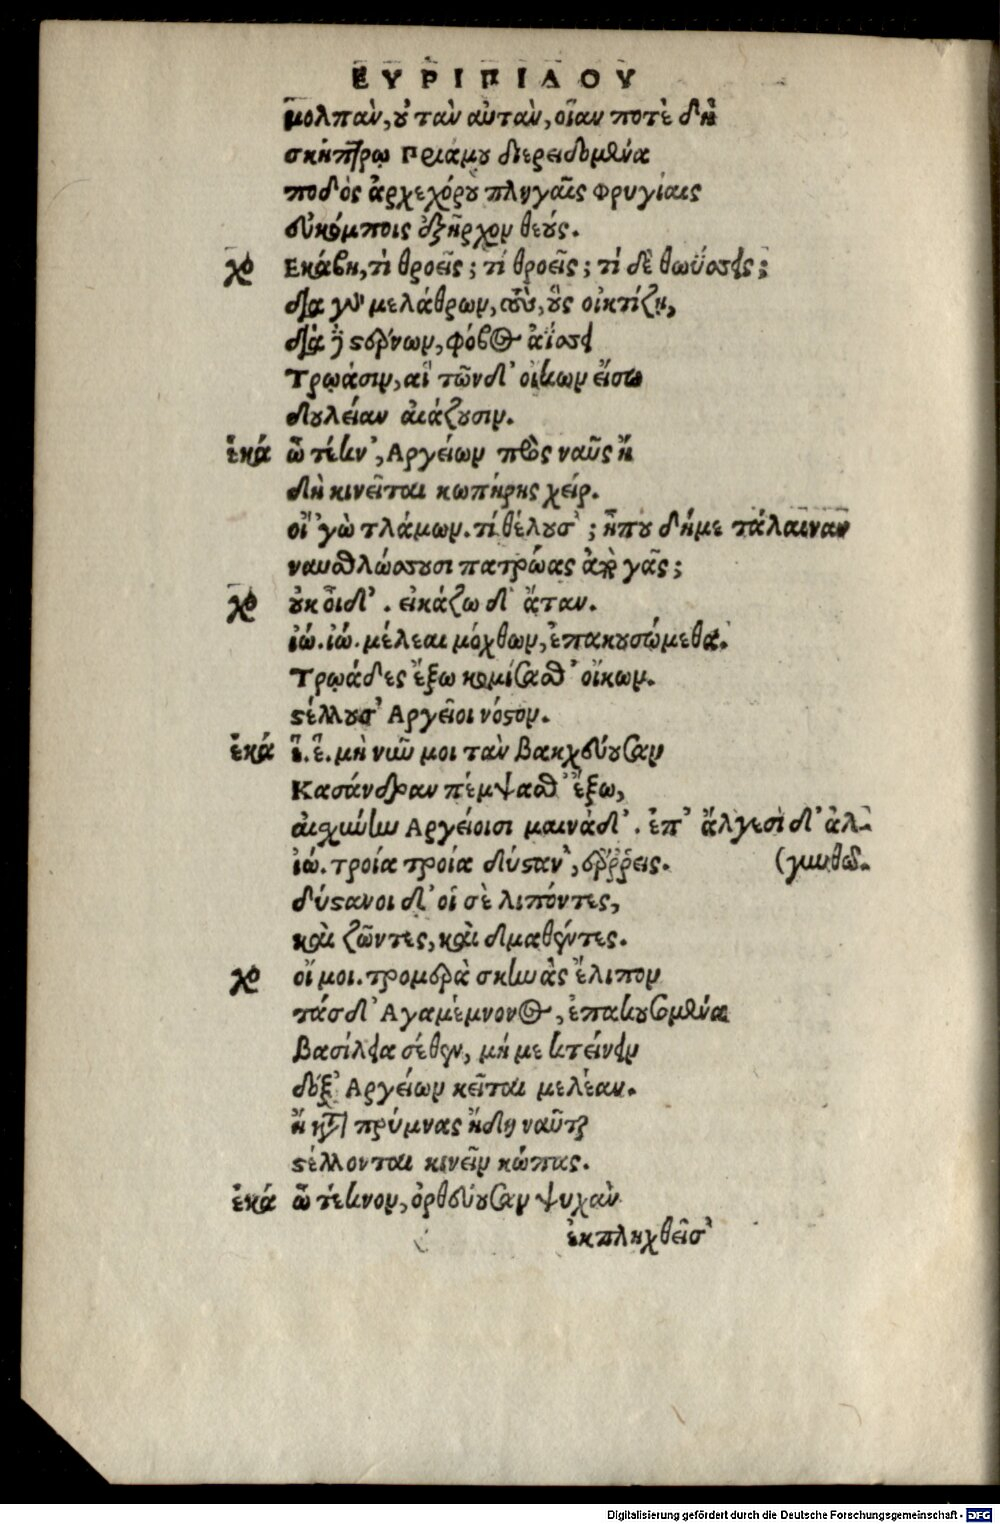 ΕΥΡΙΠΙΔΟΥ
μολπὰν, οὐ τὰν αὐτὰν, οἵαν ποτὲ δὴ
σκήπτρῳ Πριάμου διερειδομένα
ποδὸς ἀρχεχόρου πληγαῖς Φρυγίαις
εὐκόμποις ἐξῆρχον θεούς.
χο Εκάβη, τί θροεῖς; τί θροεῖς; τί δὲ θωΰσσεις;
διὰ γὰρ μελάθρων, οὓς οἰκτίζῃ,
διὰ δὲ στέρνων, φόβος ἀΐσσει
Τρωάσιν, αἳ τῶνδ' οἴκων εἴσω
δουλείαν αἰάζουσιν.
ἑκά ὦ τέκν', Αργείων πρὸς ναῦς ἤ
δη κινεῖται κωπήρης χείρ.
οἲ 'γὼ τλάμων. τί θέλουσ'; ἦπου δήμε τάλαιναν
ναυσθλώσουσι πατρώας ἀπὸ γᾶς;
χο οὐκ οἶδ'. εἰκάζω δ' ἄταν.
ἰώ. ἰώ. μέλεαι μόχθων, ἐπακουσώμεθα.
Τρωάδες ἔξω κομίσασθ' οἴκων.
στέλλουσ' Αργεῖοι νόστον.
ἑκά ἒ. ἒ. μὴ νῦν μοι τὰν Βακχεύουσαν
Κασάνδραν πέμψασθ' ἔξω,
αἰσχύνην Αργείοισι μαινάδ'. ἐπ' ἄλγεσι δ' ἀλ-
ἰώ. τροία τροία δύσταν', ἔρρεις. (γυνθῶ.
δύστανοι δ' οἱ σὲ λιπόντες,
καὶ ζῶντες, καὶ δμαθέντες.
χο οἴ μοι. τρομερὰ σκηνὰς ἔλιπον
τάσδ' Αγαμέμνονος, ἐπακουσομένα
βασίλεια σέθεν, μή με κτείνειν
δόξ' Αργείων κεῖται μελέαν.
ἢ κατὰ πρύμνας ἤδη ναῦται
στέλλονται κινεῖν κώπας.
ἑκά ὦ τέκνον, ὀρθεύουσαν ψυχὰν
ἐκπληχθεῖσ'
Digitalisierung gefördert durch die Deutsche Forschungsgemeinschaft - DFG